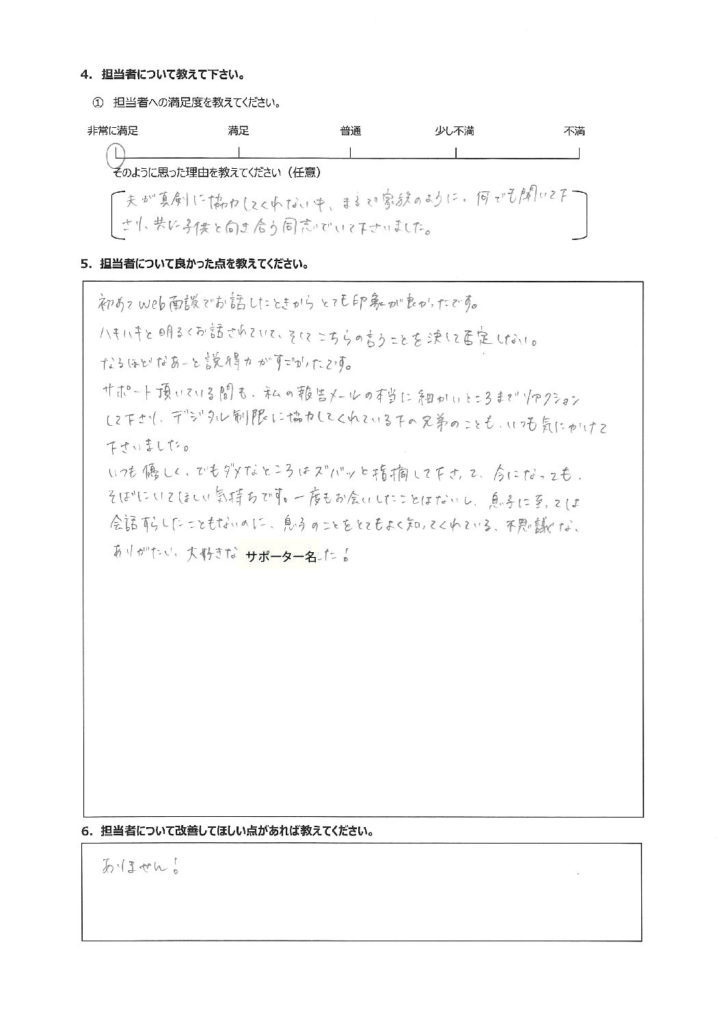 4．担当者について教えて下さい。
① 担当者への満足度を教えてください。
非常に満足 満足 普通 少し不満 不満
そのように思った理由を教えてください（任意）
夫が真剣に協力してくれない中、まるで家族のように、何でも聞いて下
さり、共に子供と向き合う同志でいて下さいました。
5．担当者について良かった点を教えてください。
初めてWeb面談でお話したときからとても印象が良かったです。
ハキハキと明るくお話されていて、そしてこちらの言うことを決して否定しない。
なるほどなあーと説得力がすごかったです。
サポート頂いている間も、私の報告メールの本当に細かいところまでリアクション
して下さり、デジタル制限に協力してくれている下の兄弟のことも、いつも気にかけて
下さいました。
いつも優しく、でもダメなところはズバッと指摘して下さって、今になっても、
そばにいてほしい気持ちです。一度もお会いしたことはないし、息子に至っては
会話すらしたこともないのに、息子のことをとてもよく知ってくれている、不思議な、
ありがたい、大好きな サポーター名 した！
6．担当者について改善してほしい点があれば教えてください。
ありません！